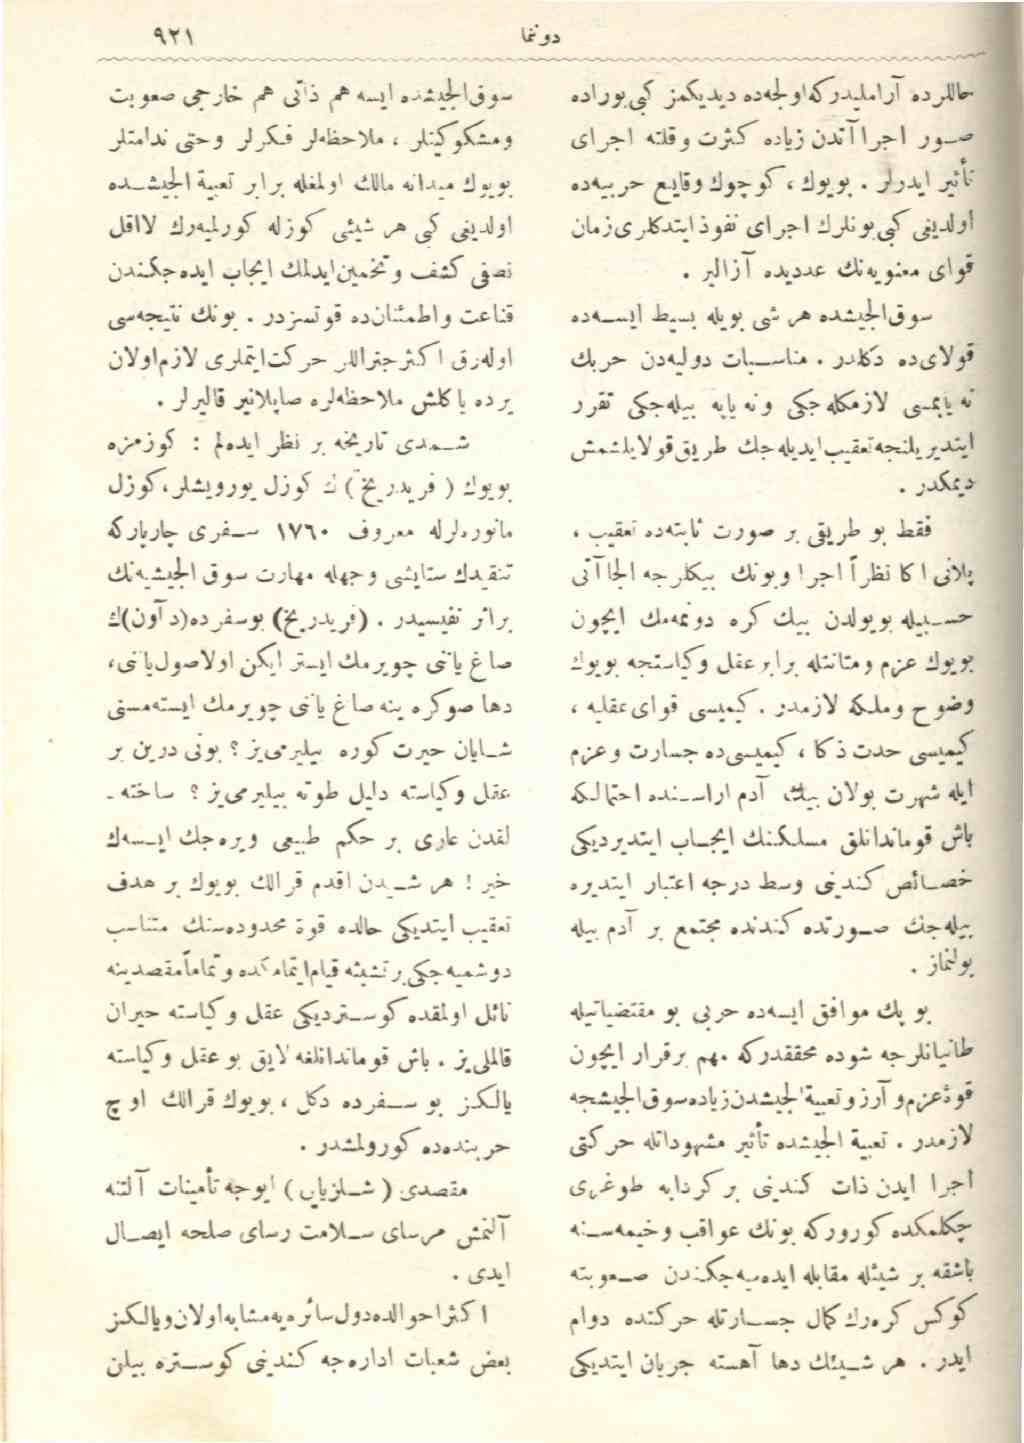 دونما
٩٢١
حاللرده آراملیدركه اولجه‌ده دیدیكمز كبی بوراده
صور اجراآتدن زیاده كثرت وقلته اجرای
تأثیر ایدرلر . بویوك ، كوچوك وقایع حربیه‌ده
اولدیغی كبی بونلرك اجرای نفوذ ایتدكلری زمان
قوای معنویه‌نك عددیده آزالیر .
سوق‌الجیشده هر شی بویله بسیط ایسه‌ده
قولای‌ده دكلدر . مناسبات دولیه‌دن حربك
نه یاپمسی لازمكله‌جكی ونه یاپه بیله‌جكی تقرر
ایتدیریلنجه تعقیب ایدیله جك طریق قولایلشمش
دیمكدر .
فقط بو طریقی بر صورت ثابته‌ده تعقیب ،
پلانی اكا نظراً اجرا وبونك بیكلرجه الجاآتی
حسبیله بویولدن بیك كره دونمه‌مك ایچون
بویوك عزم ومتانتله برابر عقل وكیاستجه بویوك
وضوح وملكه لازمدر . كیمیسی قوای عقلیه ،
كیمیسی حدت ذكا ، كیمیسی‌ده جسارت وعزم
ایله شهرت بولان بیك آدم اراسنده احتمالكه
باش قوماندانلق مسلكنك ایجاب ایتدیردیكی
خصائص كندینی وسط درجه اعتبار ایتدیره
بیله‌جك صورتده كندنده مجتمع بر آدم بیله
بولنماز .
بو پك موافق ایسه‌ده حربی بو مقتضیاتیله
طانیانلرجه شوده محققدركه مهم برقرار ایچون
قوۀ عزم و آرزو تعبیة الجیشدن زیاده سوق‌الجیشجه
لازمدر . تعبیة الجیشده تأثیر مشهوداتله حركتی
اجرا ایدن ذات كندینی بر كردابه طوغری
چكلمكده كوروركه بونك عواقب وخیمه‌سنه
باشقه بر شیئله مقابله ایده‌میه‌جكندن صعوبته
كوكس كره‌رك كمال جسارتله حركتده دوام
ایدر . هر شیئك دها آهسته جریان ایتدیكی
سوق‌الجیشده ایسه هم ذاتی هم خارجی صعوبت
ومشكوكیتلر ، ملاحظه‌لر فكرلر وحتی ندامتلر
بویوك میدانه مالك اولمغله برابر تعبیة الجیشده
اولدیغی كبی هر شیئی كوزله كورلمیه‌رك لااقل
نصفی كشف وتخمین ایدلمك ایجاب ایده‌جكندن
قناعت واطمئنان‌ده قوتسزدر . بونك نتیجه‌سی
اوله‌رق اكثر جنراللر حركت ایتملری لازم اولان
یرده یاكلش ملاحظه‌لره صاپلانیر قالیرلر .
شمدی تاریخه بر نظر ایده‌لم : كوزمزه
بویوك ( فریدریخ ) ك كوزل یورویشلر ، كوزل
مانوره‌لرله معروف ١٧٦٠ سفری چارپاركه
تنقیدك ستایشی وجهله مهارت سوق الجیشیه‌نك
براثر نفیسیدر . (فریدریخ) بوسفرده (دآون) ك
صاغ یاننی چویرمك ایستر ایكن اولا صول یاننی ،
دها صوكره ینه صاغ یاننی چویرمك ایسته‌مسنی
شایان حیرت كوره بیلیرمی‌یز ؟ بونی درین بر
عقل وكیاسته دلیل طوته بیلیرمی‌یز ؟ ساخته ـ
لقدن عاری بر حكم طبیعی ویره‌جك ایسه‌ك
خیر ! هر شیدن اقدم قرالك بویوك بر هدف
تعقیب ایتدیكی حالده قوۀ محدوده‌سنك متناسب
دوشمیه‌جكی بر تشبثه قیام ایتمامكده وتماماً مقصدینه
نائل اولمقده كوستردیكی عقل وكیاسته حیران
قالملی‌یز . باش قوماندانلغه لایق بو عقل وكیاسته
یالكز بو سفرده دكل ، بویوك قرالك اوچ
حربنده‌ده كورولمشدر .
مقصدی ( شلزیایی ) ایوجه تأمینات آلتنه
آلنمش مرسای سلامت رسای صلحه ایصال
ایدی .
اكثر احوالده دول سائره‌یه مشابه اولان ویالكز
بعض شعبات اداره‌جه كندینی كوستره بیلن